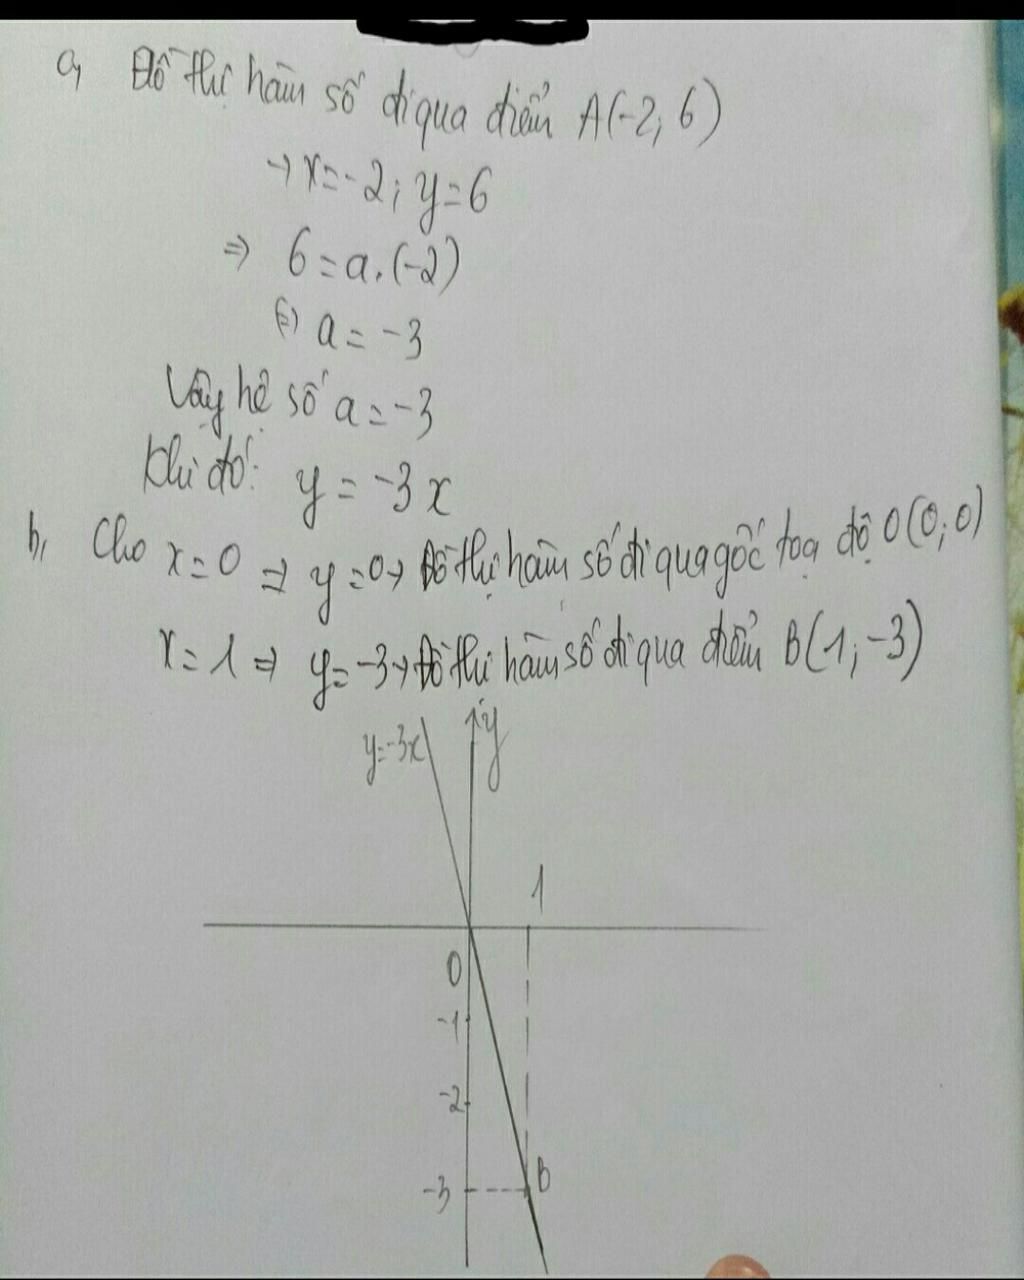 a, Đồ thị hàm số đi qua điểm A(-2; 6)
→ x = -2; y = 6
⇒ 6 = a.(-2)
(=) a = -3
Vậy hệ số a = -3
Khi đó: y = -3x
b, Cho x = 0 ⇒ y = 0 → Đồ thị hàm số đi qua gốc toạ độ O(0; 0)
x = 1 ⇒ y = -3 → Đồ thị hàm số đi qua điểm B(1; -3)
y = -3x
y
1
0
-1
-2
-3
B